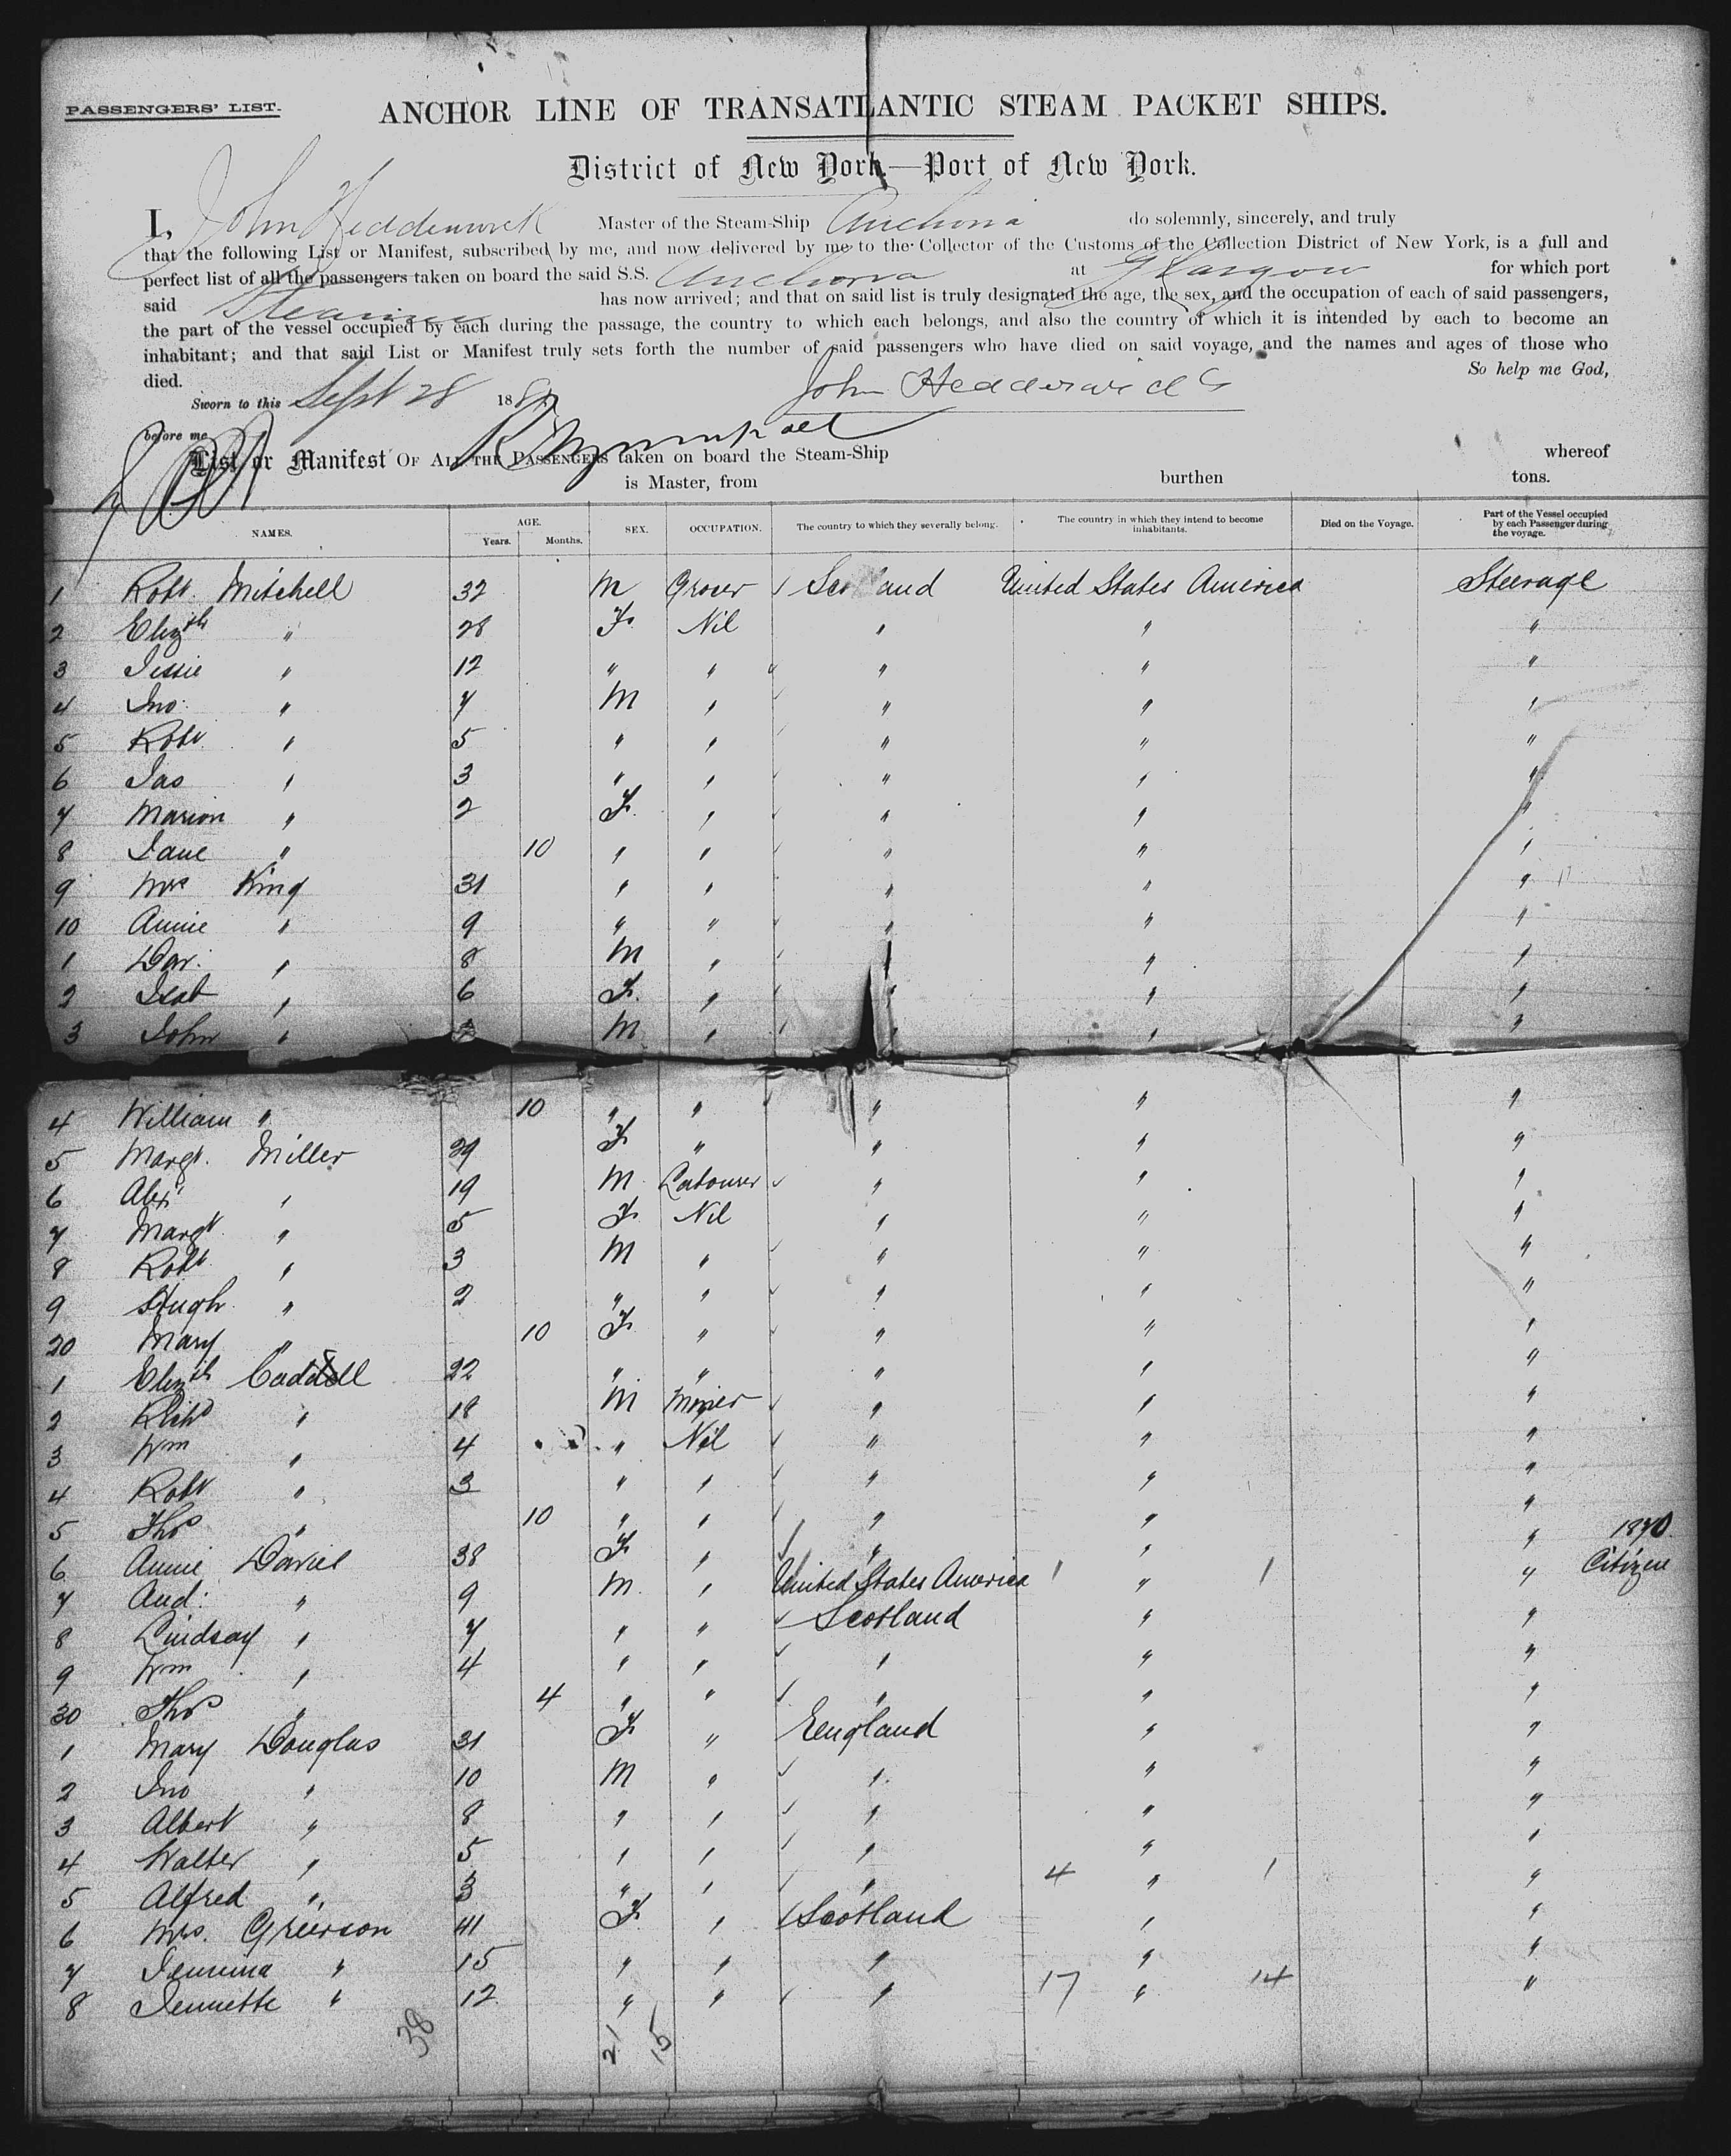 PASSENGERS' LIST.
ANCHOR LINE OF TRANSATLANTIC STEAM PACKET SHIPS.
District of New York.—Port of New York.
I, John Hedderwick Master of the Steam-Ship Anchoria do solemnly, sincerely, and truly
that the following List or Manifest, subscribed by me, and now delivered by me to the Collector of the Customs of the Collection District of New York, is a full and
perfect list of all the passengers taken on board the said S.S. Anchoria at Glasgow for which port
said Steamer has now arrived; and that on said list is truly designated the age, the sex, and the occupation of each of said passengers,
the part of the vessel occupied by each during the passage, the country to which each belongs, and also the country of which it is intended by each to become an
inhabitant; and that said List or Manifest truly sets forth the number of said passengers who have died on said voyage, and the names and ages of those who
died. So help me God,
Sworn to this Sept 28 188 John Hedderwick
before me
List or Manifest OF ALL THE PASSENGERS taken on board the Steam-Ship whereof
is Master, from burthen tons.
NAMES. AGE. Years. Months. SEX. OCCUPATION. The country to which they severally belong. The country in which they intend to become inhabitants. Died on the Voyage. Part of the Vessel occupied by each Passenger during the voyage.
1 Robt. Mitchell 32 M Grocer Scotland United States America Steerage
2 Elizth " 28 F. Nil " " "
3 Jessie " 12 " " " " "
4 Jno. " 7 M " " " "
5 Robt. " 5 " " " " "
6 Jas " 3 " " " " "
7 Marion " 2 F. " " " "
8 Jane " 10 " " " " "
9 Mrs King 31 " " " " "
10 Annie " 9 " " " " "
1 Dav. " 8 M " " " "
2 Isab " 6 F. " " " "
3 John " M " " " "
4 William " 10 " " " " "
5 Margt. Miller 39 F. " " " "
6 Alexr " 19 M Labourer " " "
7 Margt " 5 F. Nil " " "
8 Robt. " 3 M " " " "
9 Hugh " 2 " " " " "
20 Mary " 10 F. " " " "
1 Elizth Caddell 22 " " " " "
2 Richd " 18 M Miner " " "
3 Wm " 4 " Nil " " "
4 Robt " 3 " " " " "
5 Thos " 10 " " " " "
6 Annie David 38 F. " " " " 1870.
7 And. " 9 M. " United States America 1 " 1 " Citizen
8 Lindsay " 7 " " Scotland " "
9 Wm " 4 " " " " "
30 Thos " 4 " " " " "
1 Mary Douglas 31 F. " England " "
2 Jno " 10 M " " " "
3 Albert " 8 " " " " "
4 Walter " 5 " " " " "
5 Alfred " 3 " " " 4 " 1 "
6 Mrs. Grierson 41 F. " Scotland " "
7 Jemima " 15 " " " " "
8 Jennette " 12 " " " 17 " 14 "
38 21 15